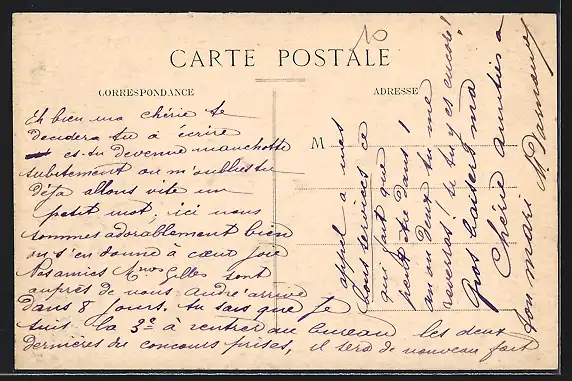 10
CARTE POSTALE
CORRESPONDANCE
ADRESSE
M
Eh bien ma chérie te
decidera tu à écrire
es-tu devenue manchotte
subitement ou m'oublies tu
déja allons vite un
petit mot, ici nous
sommes adorablement bien
on s'en donne à cœur joie
Nos amies Mmes Gilles sont
auprès de nous André arrive
dans 8 jours. tu sais que je
suis la 3e à rentrer au bureau les deux
dernières du concours prises, il sera de nouveau fait
appel à mes
bons services ce
qui fait que
peut être dans 1
an ou deux tu me
reverras! si tu y es encore!
Gros baisers ma
Chérie amitiés à
ton mari M.